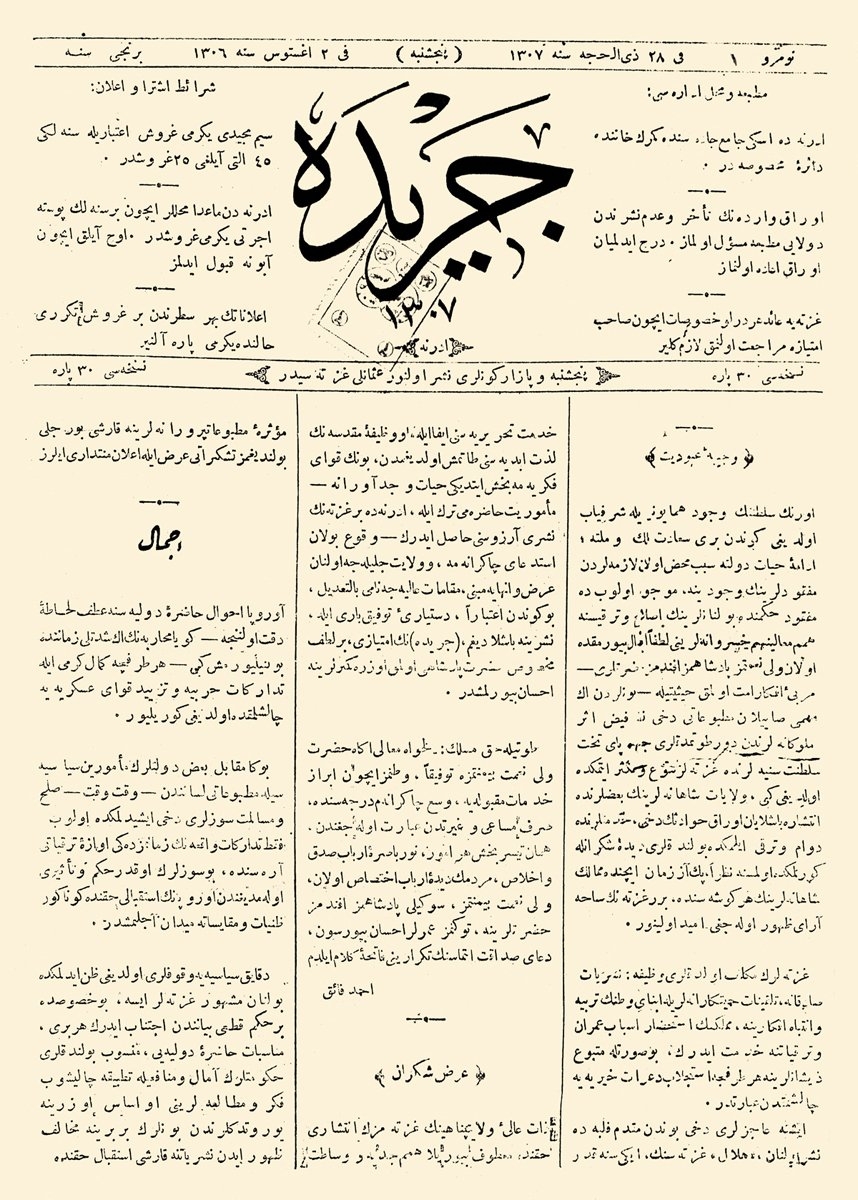 نومرو ١ فی ٢٨ ذی الحجه سنه ١٣٠٧ (پنجشنبه) فی ٢ اغستوس سنه ١٣٠٦ برنجی سنه
مطبعه و محل اداره سی:
ادرنه ده اسکی جامع جاده سنده کمرك خاننده
دائرۀ مخصوصه در ٠
اوراق وارده نك تأخر وعدم نشرندن
دولایی مطبعه مسؤل اولماز ٠ درج ایدلمیان
اوراق اعاده اولنماز
غزته یه عائد هر درلو خصوصات ایچون صاحب
امتیازه مراجعت اولنمق لازم کلیر
جریده
١٣٠٧
ادرنه
شرائط اشترا و اعلان:
سیم مجیدی یکرمی غروش اعتباریله سنه لکی
٤٥ التی آیلغی ٢٥ غروشدر ٠
ادرنه دن ماعدا محللر ایچون برسنه لك پوسته
اجرتی یکرمی غروشدر ٠ اوچ آیلق ایچون
آبونه قبول ایدلمز
اعلاناتك بهر سطرندن بر غروش تکرری
حالنده یکرمی پاره آلنیر
نسخه سی ٣٠ پاره
پنجشنبه و پازار کونلری نشر اولنور عثمانلی غزته سیدر
نسخه سی ٣٠ پاره
﴿ وجیبۀ عبودیت ﴾
اورنك سلطنتك وجود همایونیله شرفیاب
اولدیغی کوندن بری سعادت ملك و ملته ؛
ادامۀ حیات دولته سبب محض اولان لازمه لردن
مفقود دلرینك وجودینه، موجود اولوب ده
مفقود حکمنده بولنانلرینك اصلاح وترقیسنه
اولان ولی نعمتمز پادشاهمز افندمز حضرتلری —
مربیٔ افکار امت اولمق حیثیتیله — بونلردن اك
مهمی صاییلان مطبوعاتی دخی فیض اثر
ملوکانه لرندن دور طوتمدقلری جهتله پای تخت
سلطنت سنیه لرنده غزته لر تنوع و تکثر ایتمکده
اولدیغی کبی، ولایات شاهانه لرینك بعضلرنده
انتشاره باشلایان اوراق حوادثك دخی،
دوام و ترقی ایلمکده بولندقلری دیدۀ شکرانله
کورلمکده اولمسنه نظراً، پك آز زمان ایچنده ممالك
شاهانه لرینك هر کوشه سنده، بر غزته نك ساحه
آرای ظهور اوله جغی امید اولنیور ٠
غزته لرك مکلف اولدقلری وظیفه: نشریات
صادقانه، تلقینات حمیتکارانه لریله ابنای وطنك تربیه
وانتباه افکارینه، مملکتك استحضار اسباب عمران
و ترقیاتنه خدمت ایدرك، بوصورتله متبوع
ذیشانلرینه هر طرفجه استجلاب دعوات خیریه یه
چالشمقدن عبارتدر ٠
ایشته عاجزلری دخی بوندن مقدم فلبه ده
نشر اولنان، «هلال» غزته سنك، ایکی سنه قدر
خدمت تحریریه سنی ایفا ایله، او وظیفۀ مقدسه نك
لذت ابدیه سنی طاتمش اولدیغمدن، بونك قوای
فکریه مه بخش ایتدیکی حیات وجدآورانه —
مأموریت حاضره می ترك ایله، ادرنه ده بر غزته نك
نشری آرزوسنی حاصل ایدرك — وقوع بولان
استدعای چاکرانه مه، و ولایت جلیله جه اولنان
عرض وانهایه مبنی، مقامات عالیه جه نامی بالتعدیل،
بوکوندن اعتباراً، دستیاریٔ توفیق باری ایله،
نشرینه باشلادیغم، (جریده) نك امتیازی، بر لطف
مخصوص حضرت پادشاهی اولمق اوزره کمترلرینه
احسان بیورلمشدر ٠
ولی نعمت بیمنتمزه توفیقاً، وطنمز ایچون ابراز
خدمات مقبولدیه، وسع چاکرانم درجه سنده،
صرف مساعی و غیرتدن عبارت اوله جغندن،
همان تیسر بخش هر امور، نور باصرۀ ارباب صدق
و اخلاص، مردمك دیدۀ ارباب اختصاص اولان،
ولی نعمت بیمنتمز، سوکیلی پادشاهمز افندمز
حضرتلرینه، توکنمز عمرلر احسان بیورسون،
دعای صداقت انتماسنك تکرارینی خاتمۀ کلام ایلدم
احمد فائق
﴿ عرض شکران ﴾
ذات عالیٔ ولایتپناهینك غزته مزك انتشاری
حقنده، معطوف بیوریلان همم جدیه و وساطت
مؤثرۀ مطبوعاتپرورانه لرینه قارشی بورجلی
بولندیغمز تشکراتی عرض ایله اعلان منتداری ایلرز
اجمال
آوروپا احوال حاضرۀ دولیه سنه عطف لحاظۀ
دقت اولنجه — کویا محاربه نك اك شدتلی زماننده
بولنیلیورمش کبی — هر طرفجه کمال کرمی ایله
تدارکات حربیه و تزیید قوای عسکریه یه
چالشلمقده اولدیغی کوریلیور ٠
بوکا مقابل بعض دولتلرك مأمورین سیاسیه
سیله مطبوعاتی لساندن — وقت وقت — صلح
و مسالمت سوزلری دخی ایشیدلمکده اولوب
فقط تدارکات واقعه نك زمانمزده کی اوازۀ ترقیاتی
آره سنده، بو سوزلرك اوقدر حکم و تأثیری
اوله مدیغندن آوروپانك استقبالی حقنده کوناکون
ظنیات و مقایساته میدان آچلمشدر ٠
دقایق سیاسیه یه وقوفلری اولدیغی ظن ایدلمکده
بولنان مشهور غزته لر ایسه، بو خصوصده
بر حکم قطعی بیانندن اجتناب ایدرك هربری،
مناسبات حاضرۀ دولیه یی، منسوب بولندقلری
حکومتلرك آمال و منافعنه تطبیقه چالیشوب
فکر و مطالعه لرینی او اساس اوزرینه
یوروتدکلرندن بونلرك بربرینه مخالف
ظهور ایدن نشریاتنه قارشی استقبال حقنده